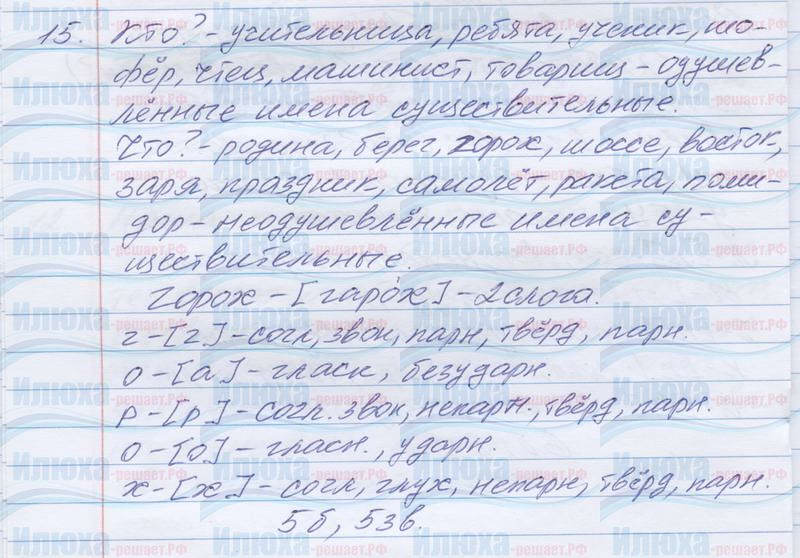 15. Кто? - учительница, ребята, ученик, шо-
фёр, чтец, машинист, товарищ - одушев-
лённые имена существительные.
Что? - родина, берег, горох, шоссе, восток,
заря, праздник, самолёт, ракета, поми-
дор - неодушевлённые имена су-
ществительные.
горох - [гаро́х] - 2 слога.
г - [г] - согл, звон, парн, твёрд, парн.
о - [а] - гласн, безударн.
р - [р] - согл. звон, непарн., твёрд, парн.
о - [о] - гласн., ударн.
х - [х] - согл, глух, непарн, твёрд, парн.
5б, 5зв.